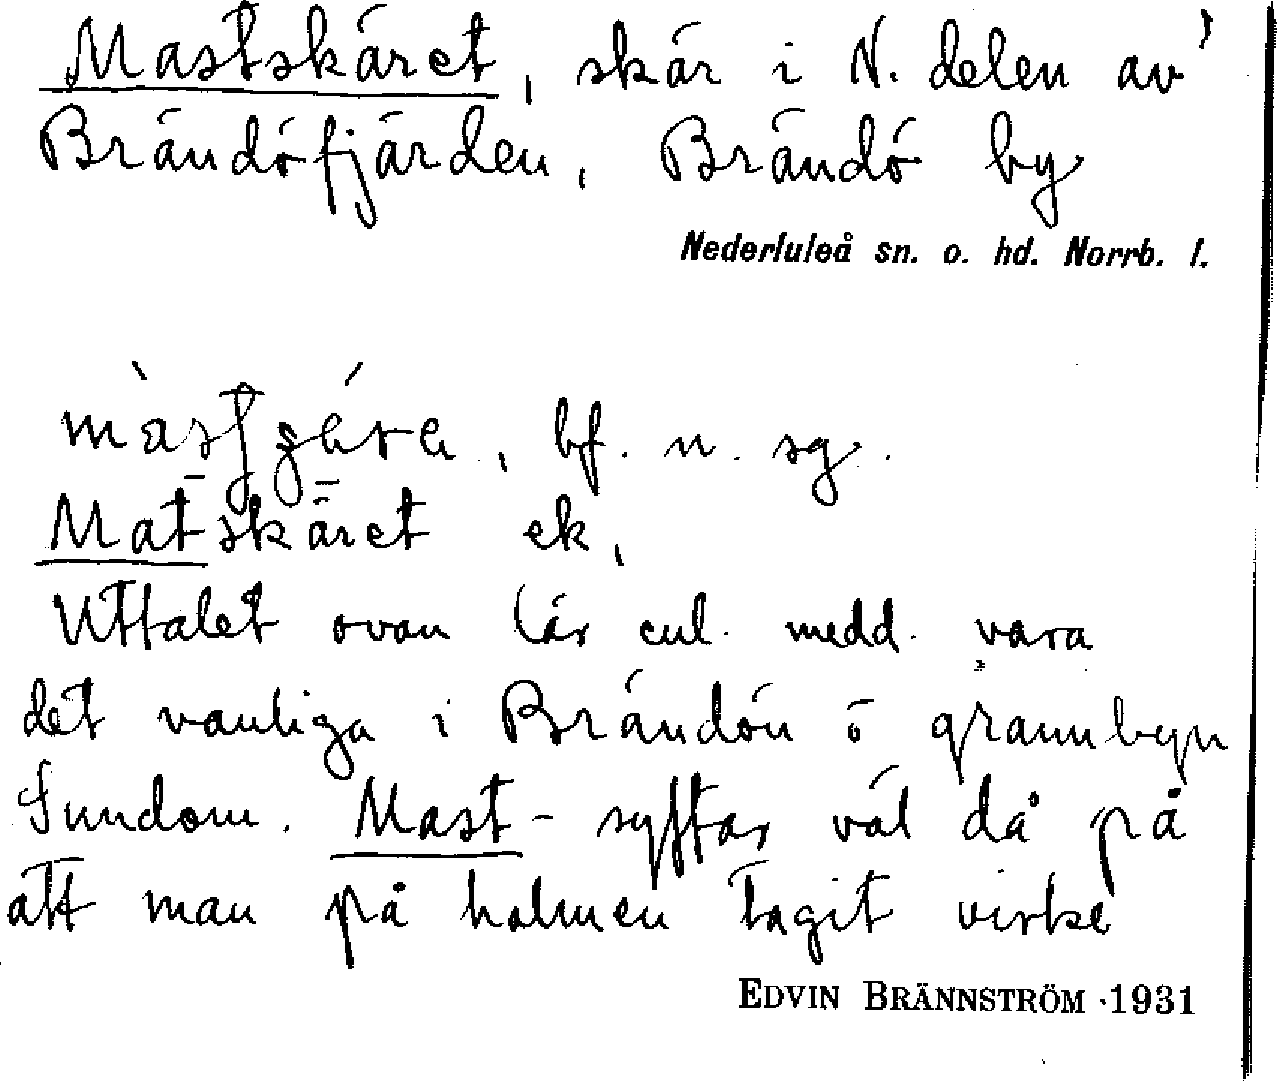 Mastskäret, skär i N. delen av
Brändöfjärden, Brändö by
Nederluleå sn. o. hd. Norrb. l.
bf. n. sg.
Matskäret ek.
Uttalet ovan lär enl. medd. vara
det vanliga i Brändön o grannbyn
Sundom. Mast- syftar väl då på
att man på holmen tagit virke
EDVIN BRÄNNSTRÖM 1931